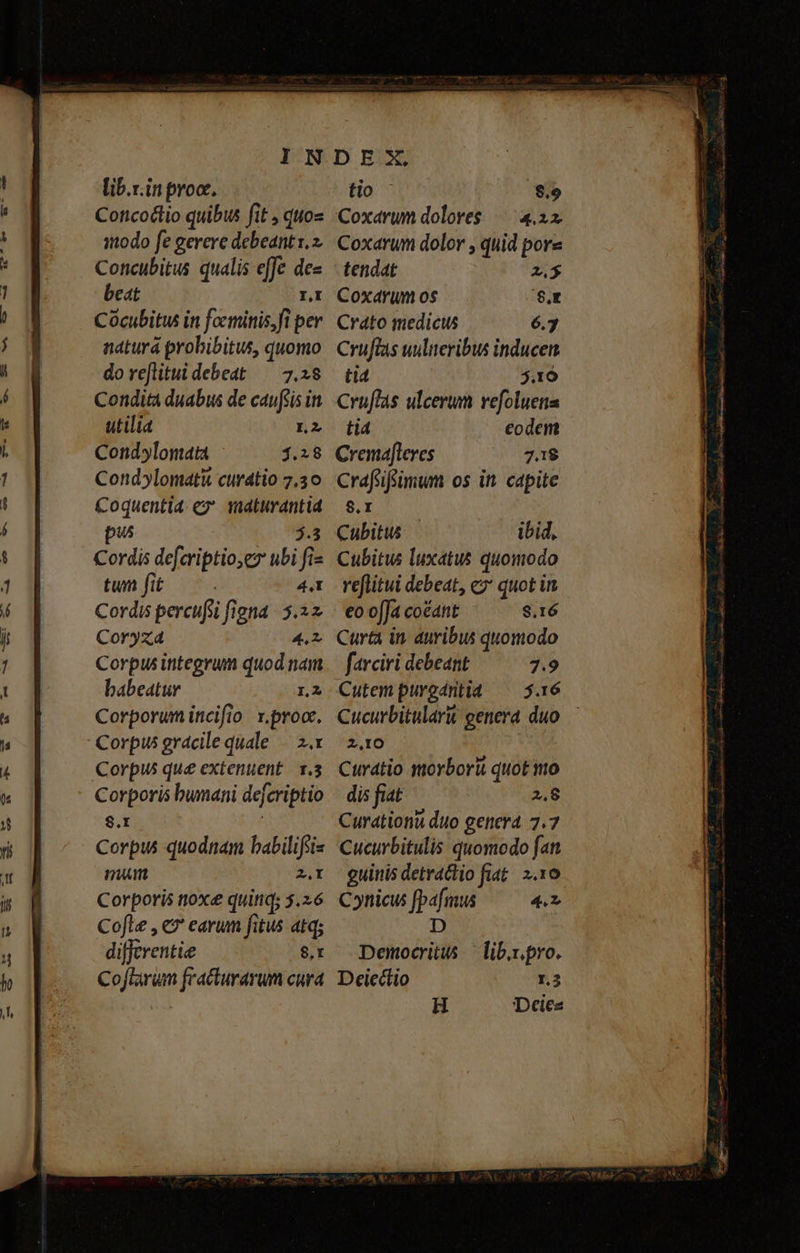 INDEX.
lib.1.in proœ.
Concoctio quibus fit, quo=
modo se gerere debeant 1,2
Concubitus qualis esse de=
beat 1,1
Cōcubitus in fœminis, si per
naturā prohibitus, quomo
do restitui debeat 7.28
Condita duabus de caussis in
utilia 1,2
Condylomata 5.28
Condylomatū curatio 7.30
Coquentia & maturantia
pus 5.3
Cordis descriptio, & ubi si=
tum sit 4,1
Cordis percussi signa 5.22
Coryza 4,2
Corpus integrum quod nam
habeatur 1,2
Corporum incisio 1.proœ.
Corpus gracile quale 2,1
Corpus quæ extenuent 1.3
Corporis humani descriptio
8.1
Corpus quodnam habilissi=
mum 2,1
Corporis noxæ quinq; 5.26
Costæ, & earum situs atq;
differentiæ 8,1
Costarum fracturarum cura
tio 8,9
Coxarum dolores 4.22
Coxarum dolor, quid pore
tendat 2,5
Coxarum os 8,1
Crato medicus 6.7
Crustas uulneribus inducen
tia 5.10
Crustas ulcerum resoluen=
tia eodem
Cremasteres 7.18
Crassissimum os in capite
8.1
Cubitus ibid.
Cubitus luxatus quomodo
restitui debeat, & quot in
eo ossa coëant 8.16
Curta in auribus quomodo
sarciri debeant 7.9
Cutem purgantia 5.16
Cucurbitularū genera duo
2,10
Curatio morborū quot mo
dis fiat 2.8
Curationū duo genera 7.7
Cucurbitulis quomodo san
guinis detractio fiat 2.10
Cynicus spasmus 4.2
D
Democritus lib.1.pro.
Deiectio 1.3
H Deie=